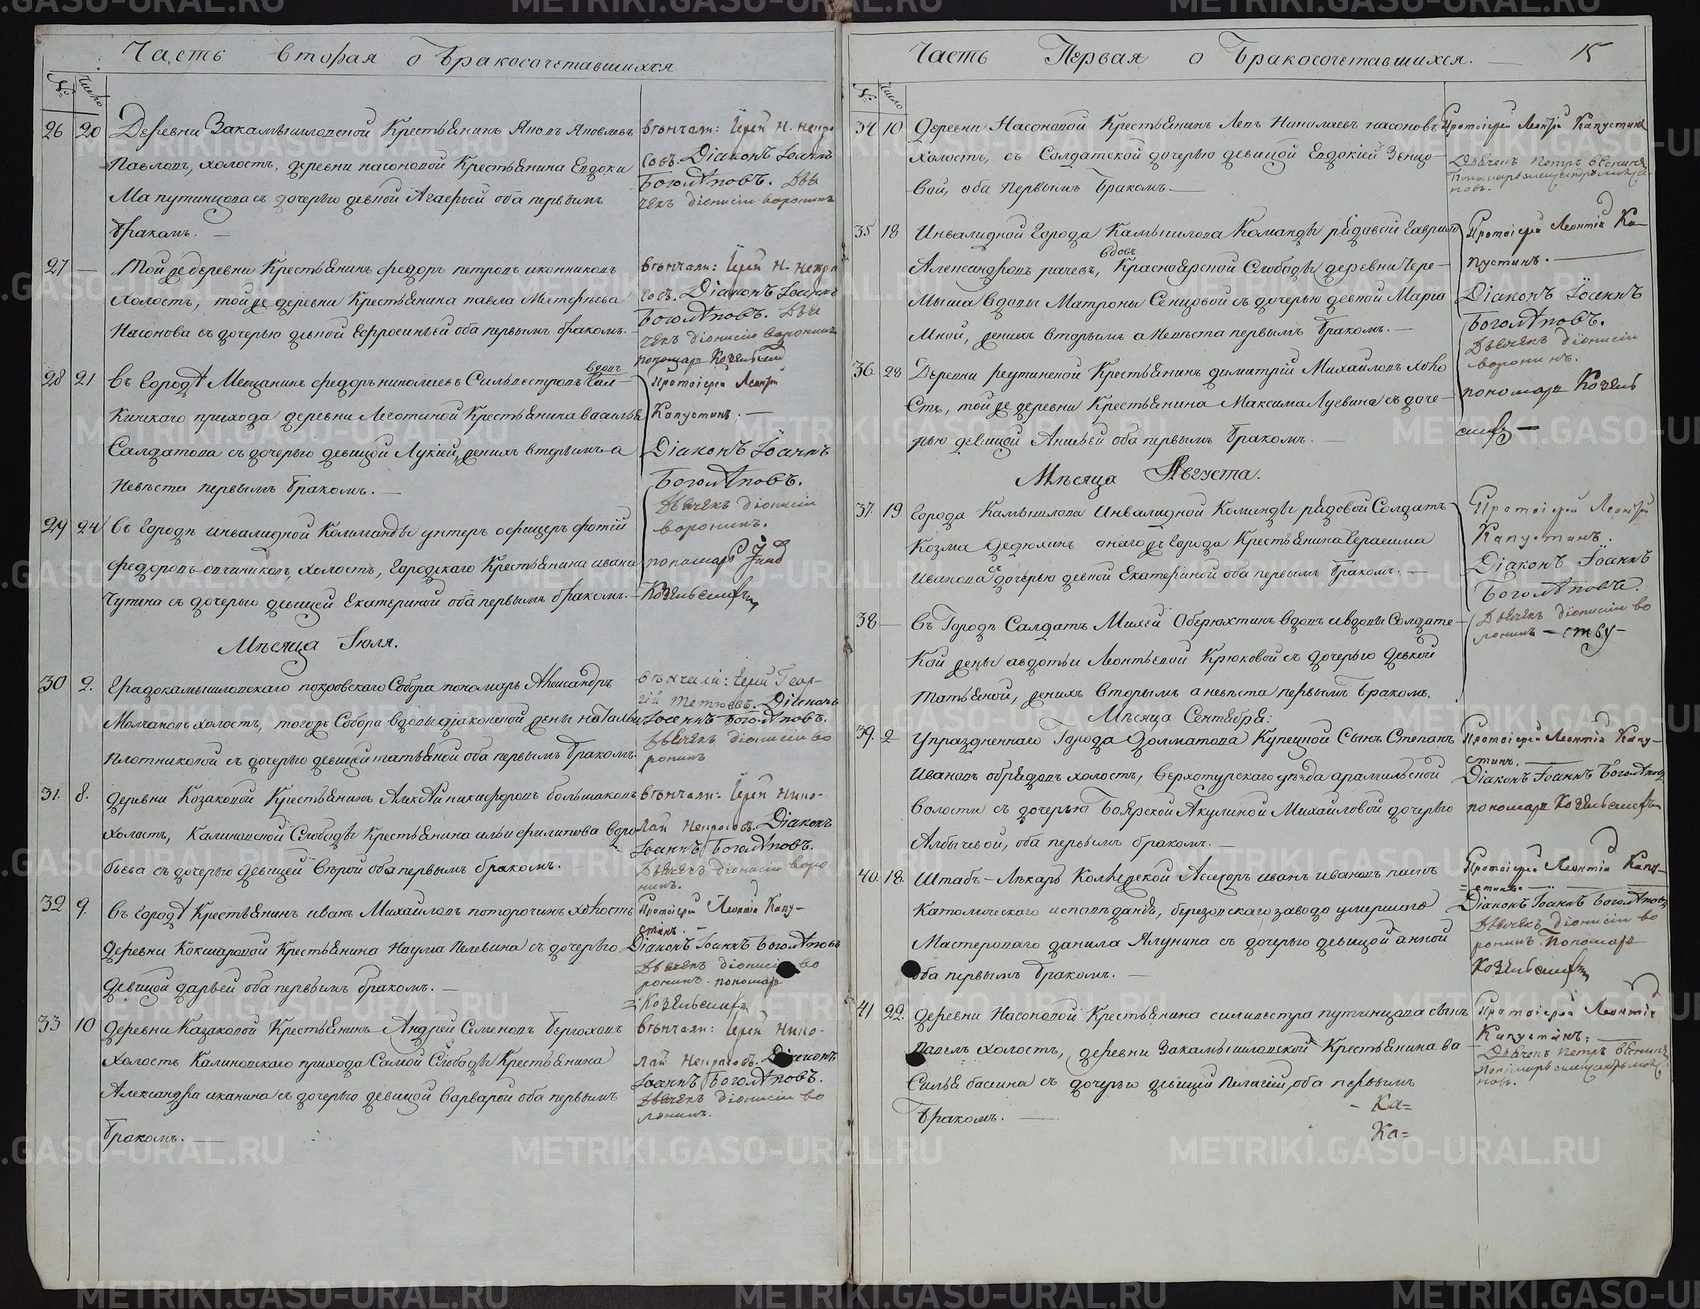 Часть вторая о Бракосочетавшихся
№ Число
26 20 Деревни Закамышловской Крестьянинъ Яковъ Яковлевъ
Павловъ, холостъ, деревни насоновой Крестьянина Евдоки
ма путинцова съ дочерью девкой Агафьей оба первымъ
бракомъ. —
венчали: Iерей Н. Непря
совъ. Дiаконъ Iоаннъ
Боголѣповъ. Дья
чекъ дiонисiй воронинъ
27 — Той же деревни Крестьянинъ федоръ петровъ иконниковъ
холостъ, той же деревни Крестьянина павла Матфеева
Насонова съ дочерью девкой Ефросиньей оба первымъ бракомъ. —
венчали: Iерей Н. Непря
совъ. Дiаконъ Iоаннъ
Боголѣповъ. Дья
чекъ дiонисiй воронинъ
28 21 въ городѣ Мещанинъ федоръ николаевъ Сильвестровъ вдовъ
прихода деревни Леготиной Крестьянина василья
Салдатова съ дочерью девицой Лукией, женихъ вторымъ а
невѣста первымъ бракомъ. —
Протоiерей Леонтiй
Капустинъ. —
Дiаконъ Iоаннъ
Боголѣповъ.
Дьячекъ дiонисiй
воронинъ.
пономарь
29 24 въ городѣ инвалидной Команды унтеръ офицеръ фотiй
федоровъ овчиниковъ, холостъ, Городскаго Крестьянина ивана
Чутина съ дочерью девицей Екатериной оба первымъ бракомъ. —
Мѣсяца Iюля.
30 2. Градокамышловскаго покровскаго Собора пономарь Александръ
Молчановъ холостъ, тогожъ Собора вдовы дiаконской жены наталiи
плотниковой съ дочерью девицей татьяной оба первымъ бракомъ.
венчали: Iерей Геор-
гiй Дiаконъ
Iоаннъ Боголѣповъ.
Дьячекъ дiонисiй во
ронинъ
31. 8. деревни Козаковой Крестьянинъ Алексѣй никифоровъ большаковъ
холостъ, Калиновской Слободы Крестьянина ильи филипова Воро
бьева съ дочерью девицей Верой оба первымъ бракомъ.
венчали: Iерей Нико-
лай Непрясовъ. Дiаконъ
Iоаннъ Боголѣповъ.
Дьячекъ дiонисiй воро
нинъ.
32 9. въ городѣ Крестьянинъ иванъ Михайловъ поторочинъ холостъ
деревни Кокшаровой Крестьянина Наума Пелевина съ дочерью
девицой дарьей оба первымъ бракомъ. —
Протоiерей Леонтiй Капу-
стинъ
Дiаконъ Iоаннъ Боголѣповъ
Дьячекъ дiонисiй во
ронинъ. пономарь
33 10 деревни Казаковой Крестьянинъ Андрей Семеновъ
холостъ Калиновскаго прихода Самой Слободы Крестьянина
Александра иканина съ дочерью девицой варварой оба первымъ
бракомъ. —
венчали: Iерей Нико-
лай Непрясовъ. Дiаконъ
Iоаннъ Боголѣповъ.
Дьячекъ дiонисiй во
ронинъ.
Часть Первая о Бракосочетавшихся. — 15
№ Число
34 10 деревни Насоновой Крестьянинъ Левъ Николаевъ насоновъ
холостъ, съ Солдатской дочерью девицой Евдокiей Зенцо-
вой, оба первымъ бракомъ. —
Протоiерей Леонтiй Капустинъ
Дьячекъ Петръ
35 18 Инвалидной Города Камышлова Команды рядовой Гаврило
Александровъ рачевъ, вдовъ Красноярской Слободы деревни Чере-
мыша вдовы Матроны Сенцовой съ дочерью девкой Марiа
мной, женихъ вторымъ а невѣста первымъ бракомъ. —
Протоiерей Леонтiй Ка-
пустинъ. —
Дiаконъ Iоаннъ
Боголѣповъ.
Дьячекъ дiонисiй
воронинъ.
пономарь
36 28 Деревни реутинской Крестьянинъ димитрiй Михайловъ холо
стъ, той же деревни Крестьянина Максима Лугвина съ доче-
рью девицой Анисьей оба первымъ бракомъ. —
Мѣсяца Августа.
37. 19. Города Камышлова Инвалидной Команды рядовой Солдатъ
Козма дедюхинъ онаго жъ города Крестьянина Герасима
Иванова съ дочерью девкой Екатериной оба первымъ бракомъ. —
Протоiерей Леонтiй
Капустинъ.
Дiаконъ Iоаннъ
Боголѣповъ.
Дьячекъ дiонисiй во
ронинъ
38 — въ Городѣ Солдатъ Михей Оберюхтинъ вдовъ и вдовы Солдатс-
кой жены авдотьи Леонтьевой Крюковой съ дочерью девкой
татьяной, женихъ вторымъ а невѣста первымъ бракомъ.
Мѣсяца Сентября:
39. 2 Упраздненнаго Города долматова Купецкой Сынъ Степанъ
Ивановъ обрядовъ холостъ, верхотурскаго уезда арамильской
волости съ дочерью Боярской Акулиной Михайловой дочерью
Албычевой, оба первымъ бракомъ. —
Протоiерей Леонтiй Капу-
стинъ. —
Дiаконъ Iоаннъ Боголѣповъ
пономарь
40. 18. Штабъ-Лѣкарь Колежской Асесоръ иванъ ивановъ
Католическаго исповѣданiя, березовскаго завода умершаго
Мастероваго данила Ялунина съ дочерью девицой анной
оба первымъ бракомъ. —
Протоiерей Леонтiй Капу-
стинъ —
Дiаконъ Iоаннъ Боголѣповъ
Дьячекъ дiонисiй во
ронинъ. Пономарь
41 22. деревни Насоновой Крестьянина силивестра путинцова сынъ
Павелъ холостъ, деревни Закамышловской Крестьянина ва
силья басина съ дочерью девицей Пелагiей, оба первымъ
бракомъ. —
Протоiерей Леонтiй
Капустинъ.
Дьячекъ Петръ
Ка=
Ка=
METRIKI.GASO-URAL.RU